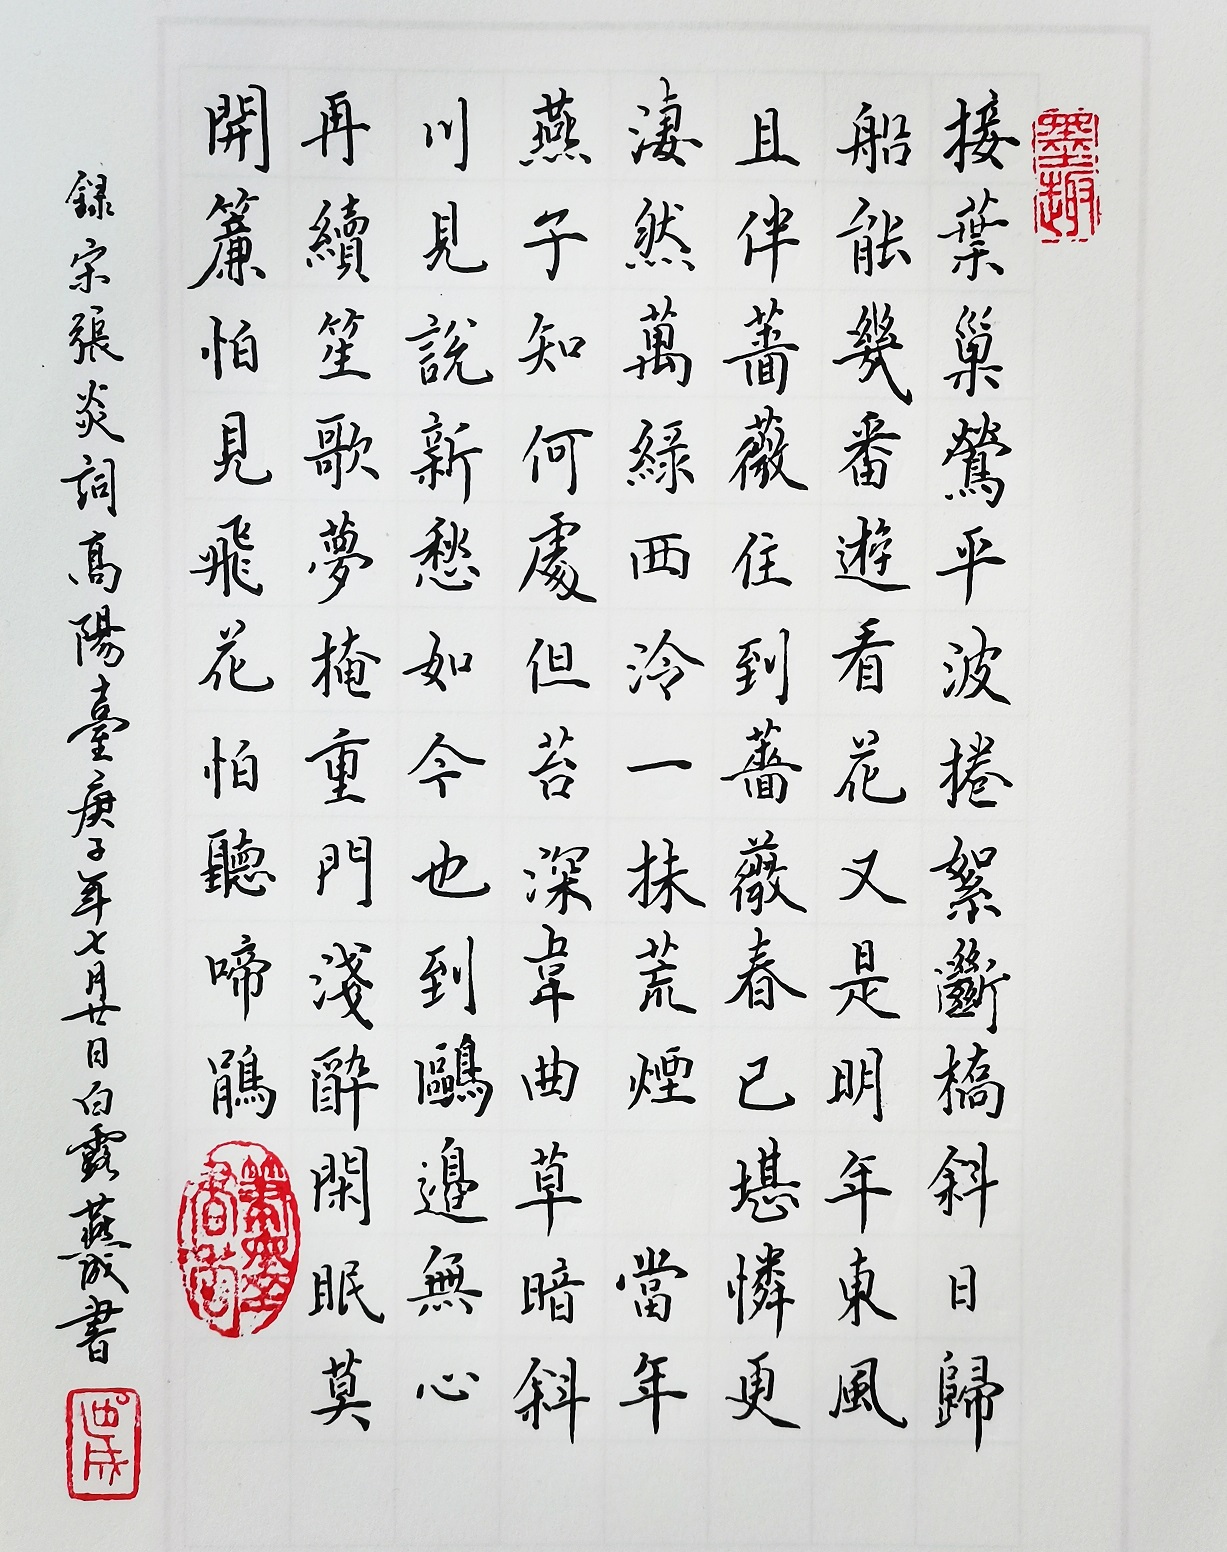 墨趣
接葉巢鶯平波捲絮斷橋斜日歸
船能幾番遊看花又是明年東風
且伴薔薇住到薔薇春已堪憐更
淒然萬綠西泠一抹荒煙 當年
燕子知何處但苔深韋曲草暗斜
川見說新愁如今也到鷗邊無心
再續笙歌夢掩重門淺醉閑眠莫
開簾怕見飛花怕聽啼鵑
録宋張炎詞高陽臺庚子年七月廿日白露燕成書